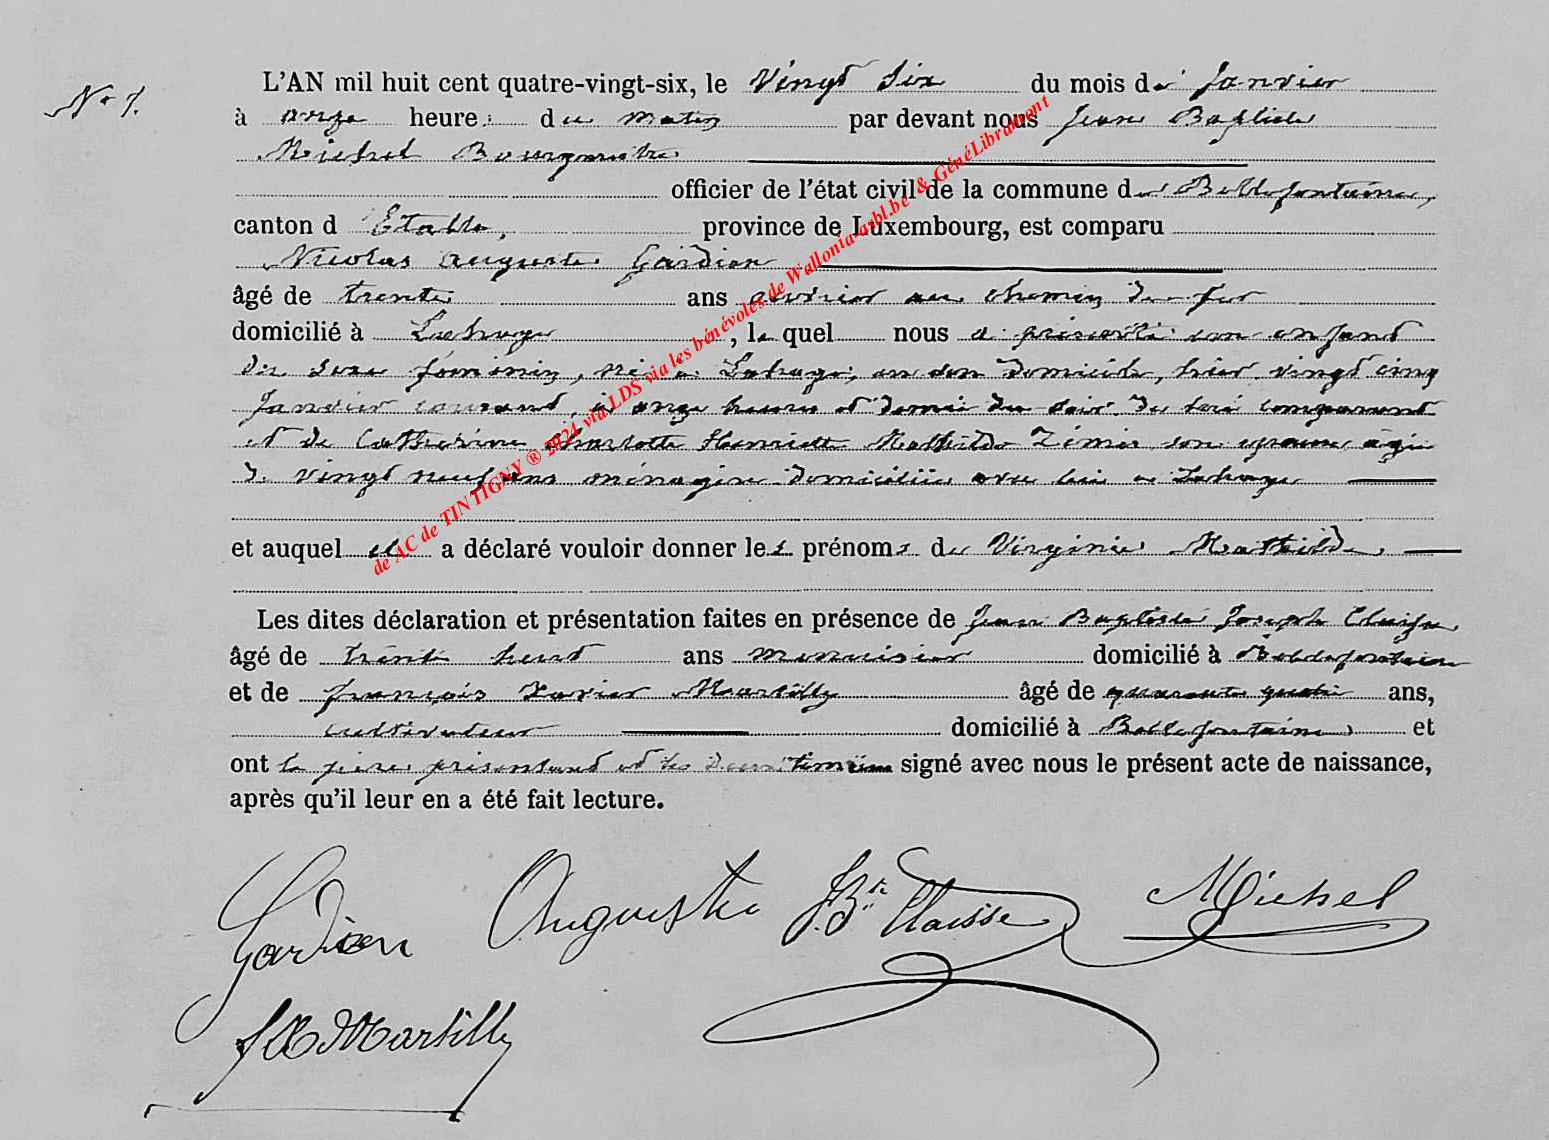 N° 7.
L'AN mil huit cent quatre-vingt-six, le Vingt Six du mois de Janvier
à onze heures du matin par devant nous Jean Baptiste
Michel Bourgmestre
officier de l'état civil de la commune de Bellefontaine,
canton d'Etalle, province de Luxembourg, est comparu
Nicolas Auguste Gardien
âgé de trente ans ouvrier au chemin de fer
domicilié à Lahage, le quel nous a présenté un enfant
du sexe féminin, né à Lahage, en son domicile, hier vingt cinq
Janvier courant, à onze heures et demie du soir de lui comparant
et de Catherine Charlotte Henriette Mathilde Zimer son épouse âgée
de vingt neuf ans ménagère domiciliée avec lui à Lahage
et auquel il a déclaré vouloir donner les prénoms de Virginie Mathilde
Les dites déclaration et présentation faites en présence de Jean Baptiste Joseph Claisse
âgé de trente huit ans menuisier domicilié à Bellefontaine
et de françois Xavier Martilly âgé de quarante quatre ans,
cultivateur domicilié à Bellefontaine et
ont le père présentant et les deux témoins signé avec nous le présent acte de naissance,
après qu'il leur en a été fait lecture.
Gardien Auguste J. Bte Claisse Michel
f X Martilly
de AC de TINTIGNY ® 2024 via LDS via les bénévoles de Wallonia-asbl.be & GénéLibramont